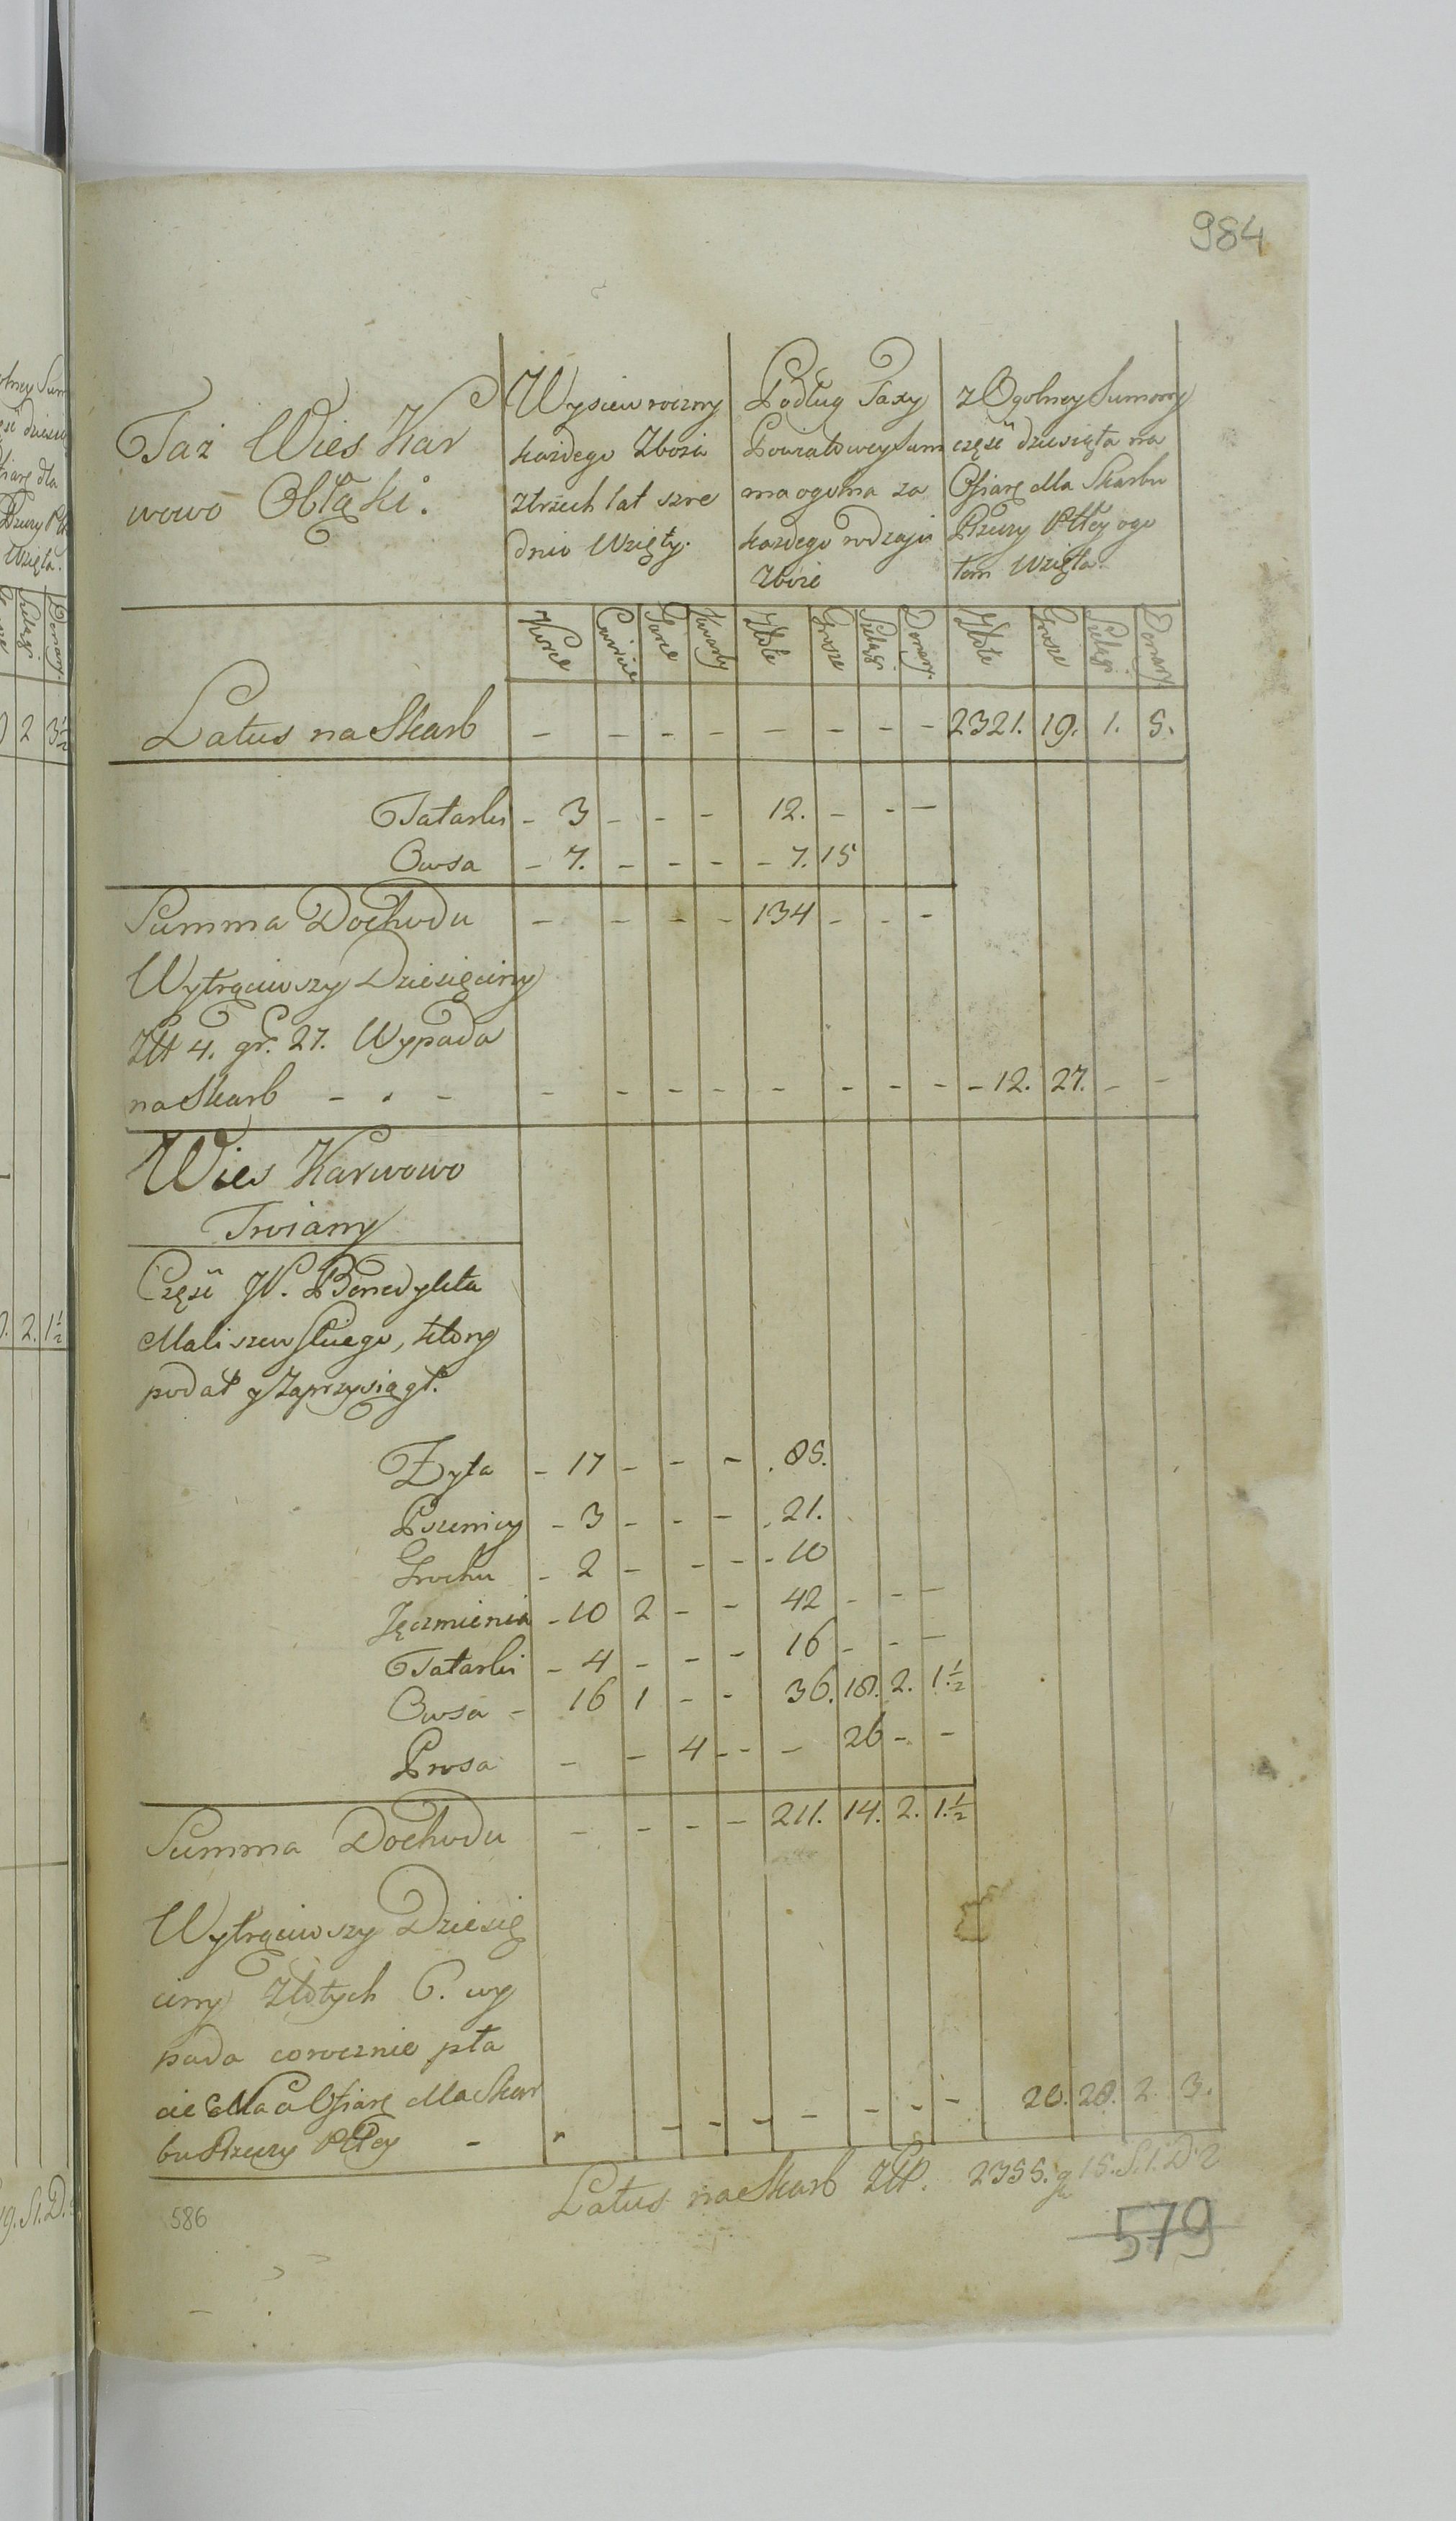 984
Taż Wies Kar
wowo Obłąki.
Wysiew roczny
każdego Zboża
ztrzech lat szre
dnio Wzięty.
Podług Taxy
Powiatowey Sum
ma ogulna za
każdego rodzaju
Zboże
z Ogolney Summy
część dziesiąta na
Ofiarę dla Skarbu
Rzeczy Pttey ogo
łem Wzięta.
Korce Cwierci Garce Kwarty Złote Grosze Szelągi Denary Złote Grosze Szelągi Denary
Latus na Skarb - - - - - - - - 2321. 19. 1. 5.
Tatarki - 3 - - - 12. - - -
Owsa - 7. - - - - 7. 15
Summa Dochodu - - - - 134 - - -
Wytrąciwszy Dziesięciny
Złł 4. gr. 27. Wypada
na Skarb - . - - - - - - - - - - 12. 27. - -
Wies Karwowo
Troiany
Część JP. Benedykta
Maliszewskiego, który
podał y zaprzysiągł.
Żyta - 17 - - - . 85.
Pszenicy - 3 - - - . 21.
Grochu - 2 - - - - 10
Jęczmienia - 10 2 - - 42 - - -
Tatarki - 4 - - - 16 - - -
Owsa - 16 1 - - 36. 18. 2. 1.½
Prosa - - 4 - - - 26 - -
Summa Dochodu - - - - 211. 14. 2. 1.½
Wytrąciwszy Dziesię
ciny Złotych 6. wy
pada corocznie pła
cić na Ofiarę dla Skar
bu Rzeczy Pttey - - - - - - - - 20. 28. 2. 3.
Latus na Skarb Złł. 2355. g 15. S. 1. D. 2
586
579